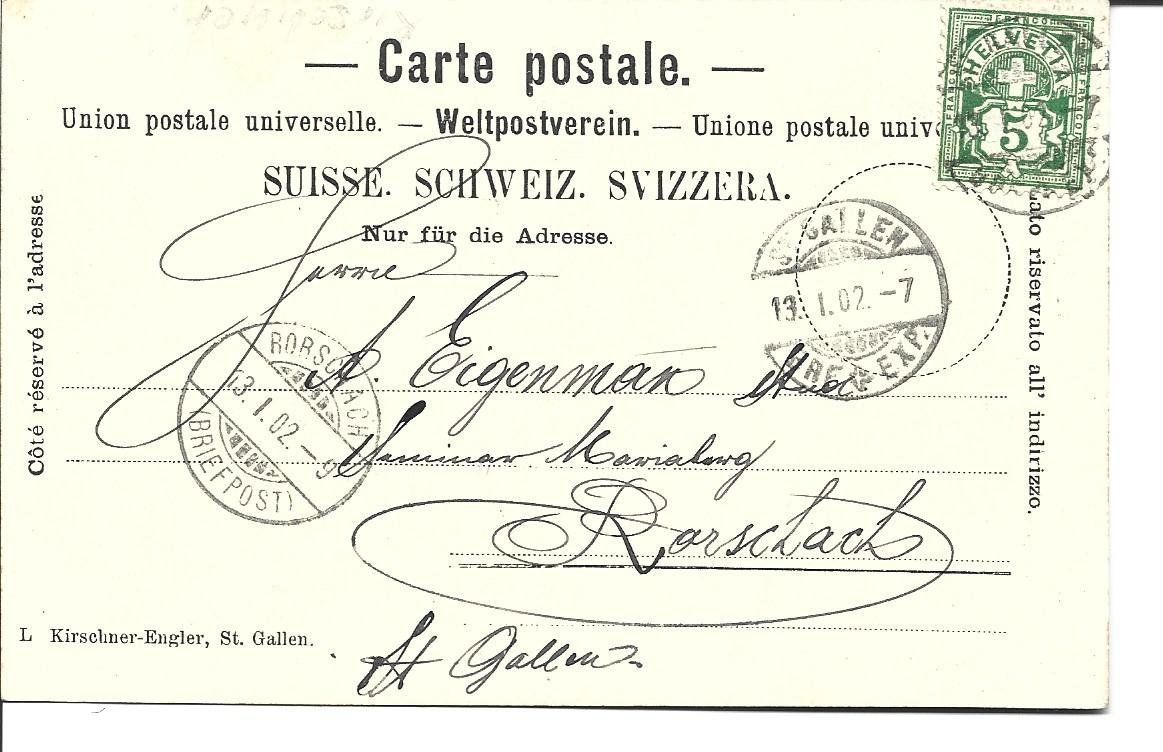 — Carte postale. —
Union postale universelle. — Weltpostverein. — Unione postale univ
SUISSE. SCHWEIZ. SVIZZERA.
Nur für die Adresse.
Côté réservé à l'adresse
lato riservato all' indirizzo.
FRANCO
FRANCO
FRANCO
HELVETIA
5
ST. GALLEN
13. I. 02. -7
BRF. EXP.
RORSCHACH
13. I. 02. -9
(BRIEFPOST)
Herrn
A. Eigenman Stud
Seminar Mariaberg
Rorschach
St Gallen
L Kirschner-Engler, St. Gallen.